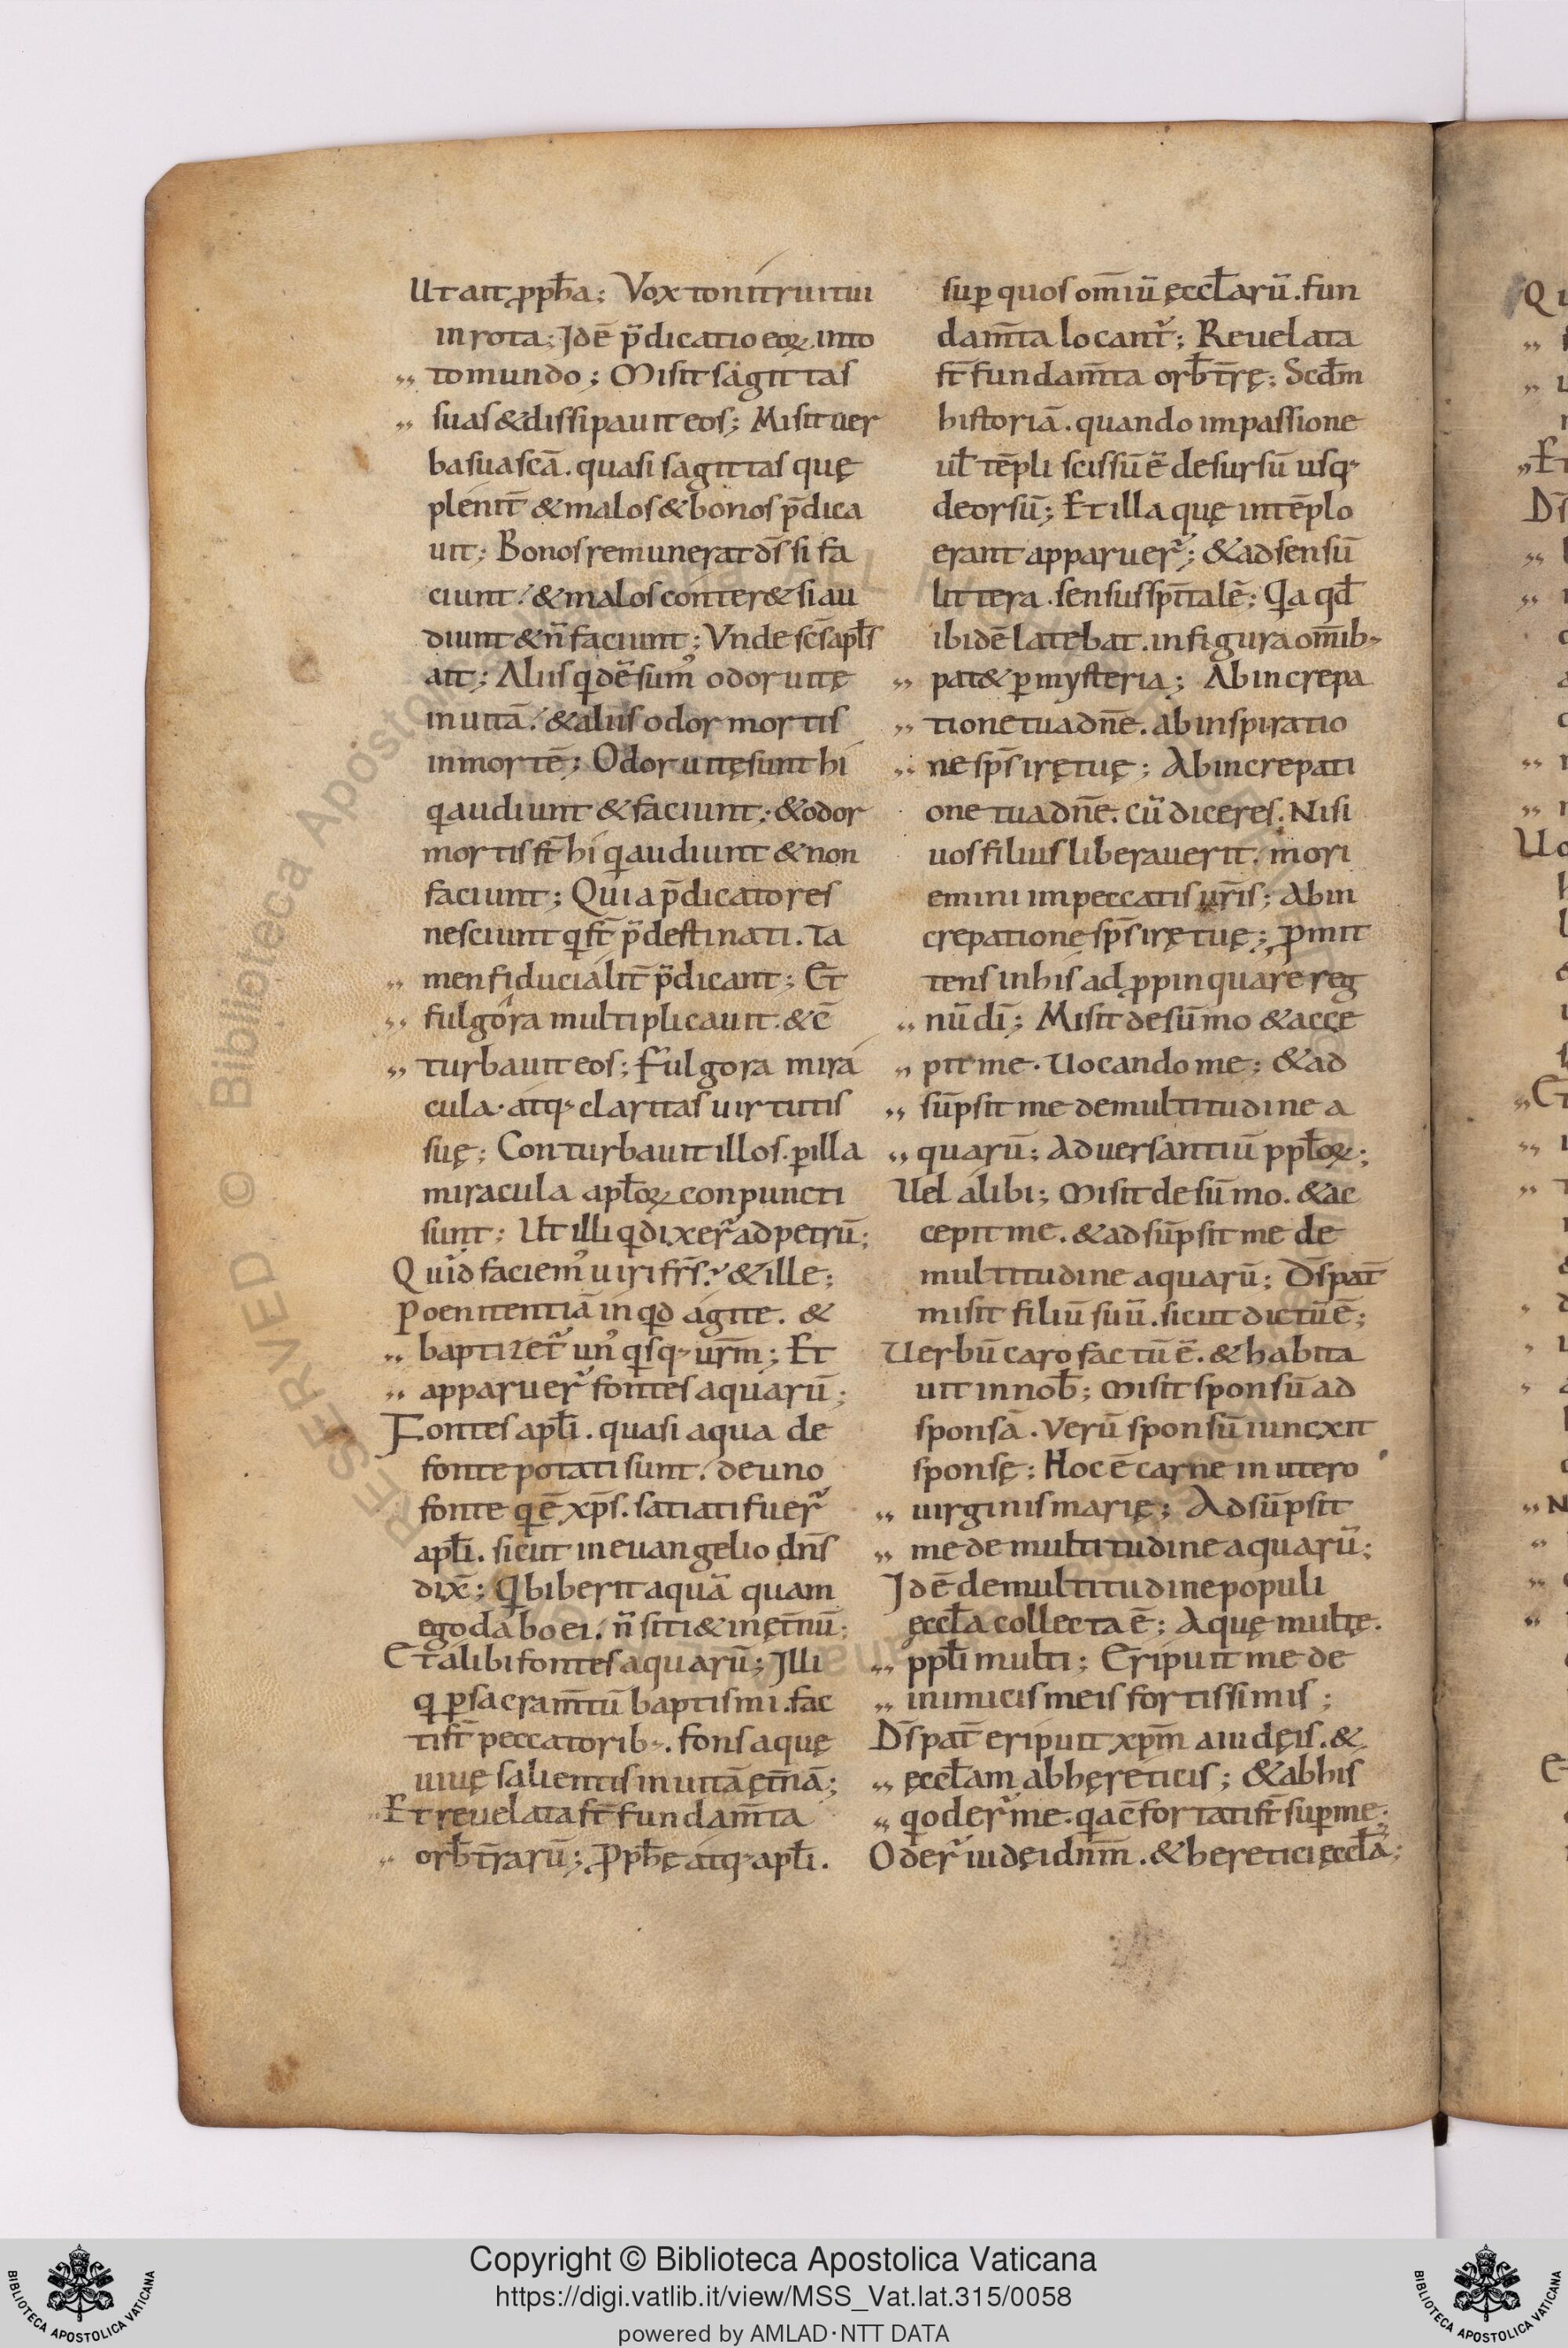 Ut ait ꝓph̄a; Vox tonitrui tui
in rota; Idē p̄dicatio eoꝝ. in to
to mundo; Misit sagittas
suas & dissipauit eos; Misit uer
ba sua sc̄a. quasi sagittas quę
plenit̄ & malos & bonos p̄dica
uit; Bonos remunerat d̄s si fa
ciunt. & malos conter& si au
diunt & n̄ faciunt; Vnde sc̄s apl̄s
ait; Aliis qdē sum᾽ odor uitę
in uitā. & aliis odor mortis
in mortē; Odor uitę sunt hi
q audiunt & faciunt; & odor
mortis st̄ hi q audiunt & non
faciunt; Quia p̄dicatores
nesciunt q st̄ p̄destinati. Ta
men fiducialit̄ p̄dicant; Et
fulgora multiplicauit. & c̄
turbauit eos; Fulgora mira
cula. atq; claritas uirtutis
suę; Conturbauit illos. ꝑ illa
miracula apl̄oꝝ conpuncti
sunt; Ut illi q dixer̄ ad petrū;
Quid faciem᾽ uiri frs̄? & ille;
Poenitentiā inqd agite. &
baptizet̄ un᾽ qsq; ur̄m; Et
apparuer̄ fontes aquarū;
Fontes apl̄i. quasi aqua de
fonte potati sunt. de uno
fonte q ē xp̄s. satiati fuer̄
apl̄i. sicut in euangelio dn̄s
dix̄; Q biberit aquā quam
ego dabo ei. n̄ siti& in ęt̄nū;
Et alibi fontes aquarū; Illi
q ꝑ sacram̄tū baptismi. fac
ti st̄ peccatorib;. fons aquę
uiuę salientis in uitā ęt̄nā;
Et reuelata st̄ fundam̄ta
orb̄ t̄rarū; Ꝓph̄ę atq; apl̄i.
suꝑ quos om̄iū ęccl̄arū. fun
dam̄ta locant̄; Reuelata
st̄ fundam̄ta orb̄ t̄rę; Scd̄m
historiā. quando in passione
uł tēpli scissū ē desursū usq;
deorsū; Et illa quę in tēplo
erant apparuer̄; & ad sensū
littera. sensus spītalē; Qa qd̄
ibidē latebat. in figura om̄ib;
pat& ꝑ mysteria; Ab increpa
tione tua dn̄e. ab inspiratio
ne sp̄s irę tuę; Ab increpati
one tua dn̄e. cū diceres. Nisi
uos filius liberauerit. mori
emini in peccatis ur̄is; Ab in
crepatione sp̄s irę tuę; Ꝓmit
tens in his adꝓpinquare reg
nū dī; Misit de sūmo & acce
pit me. Uocando me; & ad
sūpsit me de multitudine a
quarū; Aduersantiū ppl̄oꝝ;
Vel alibi; Misit de sūmo. & ac
cepit me. & adsūpsit me de
multitudine aquarū; Ds̄ pat̄
misit filiū suū. sicut dictū ē;
Uerbū caro factū ē. & habita
uit in nob̄; Misit sponsū ad
sponsā. Verū sponsū iuncxit
sponsę; Hoc ē carne in utero
uirginis marię; Adsūpsit
me de multitudine aquarū;
Idē de multitudine populi
ęccl̄a collecta ē; Aquę multę.
ppl̄i multi; Eripuit me de
inimicis meis fortissimis;
Ds̄ pat̄ eripuit xp̄m a iudęis. &
ęccl̄am ab hęreticis; & ab his
q oder̄ me. q ac̄fortati st̄ suꝑ me;
Oder̄ iudęi dnm̄. & heretici ęccl̄ā;
Copyright © Biblioteca Apostolica Vaticana
https://digi.vatlib.it/view/MSS_Vat.lat.315/0058
powered by AMLAD·NTT DATA
BIBLIOTECA APOSTOLICA VATICANA
BIBLIOTECA APOSTOLICA VATICANA